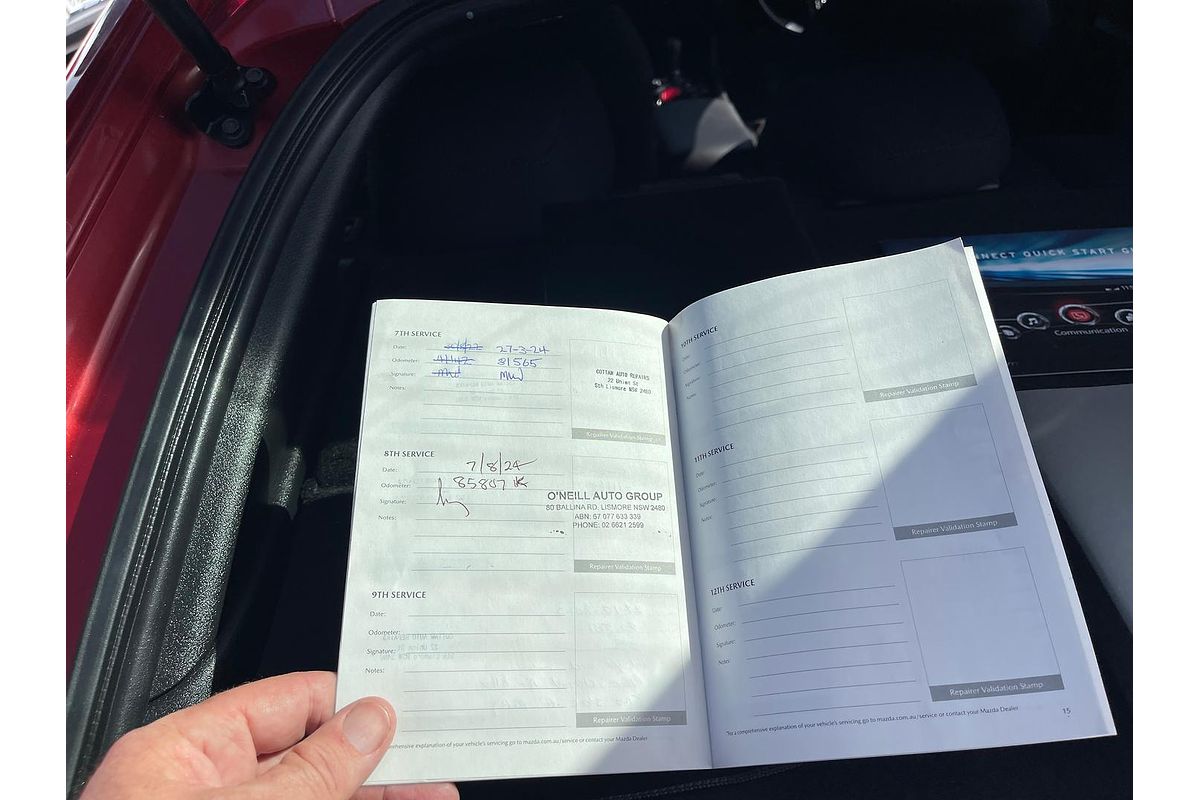 7TH SERVICE
Date: 27-3-24
Odometer: 81565
Signature:
Notes:
COTTAM AUTO REPAIRS
22 Union St
Sth Lismore NSW 2480
Repairer Validation Stamp
8TH SERVICE
Date: 7/8/24
Odometer: 85807 K
Signature:
Notes:
O'NEILL AUTO GROUP
80 BALLINA RD, LISMORE NSW 2480
ABN: 67 077 633 339
PHONE: 02 6621 2599
Repairer Validation Stamp
9TH SERVICE
Date:
Odometer:
Signature:
Notes:
Repairer Validation Stamp
comprehensive explanation of your vehicle's servicing go to mazda.com.au/service or contact your Mazda Dealer
10TH SERVICE
Date:
Odometer:
Signature:
Notes:
Repairer Validation Stamp
11TH SERVICE
Date:
Odometer:
Signature:
Notes:
Repairer Validation Stamp
12TH SERVICE
Date:
Odometer:
Signature:
Notes:
Repairer Validation Stamp
*For a comprehensive explanation of your vehicle's servicing go to mazda.com.au/service or contact your Mazda Dealer
15
NNECT QUICK START G
Communication